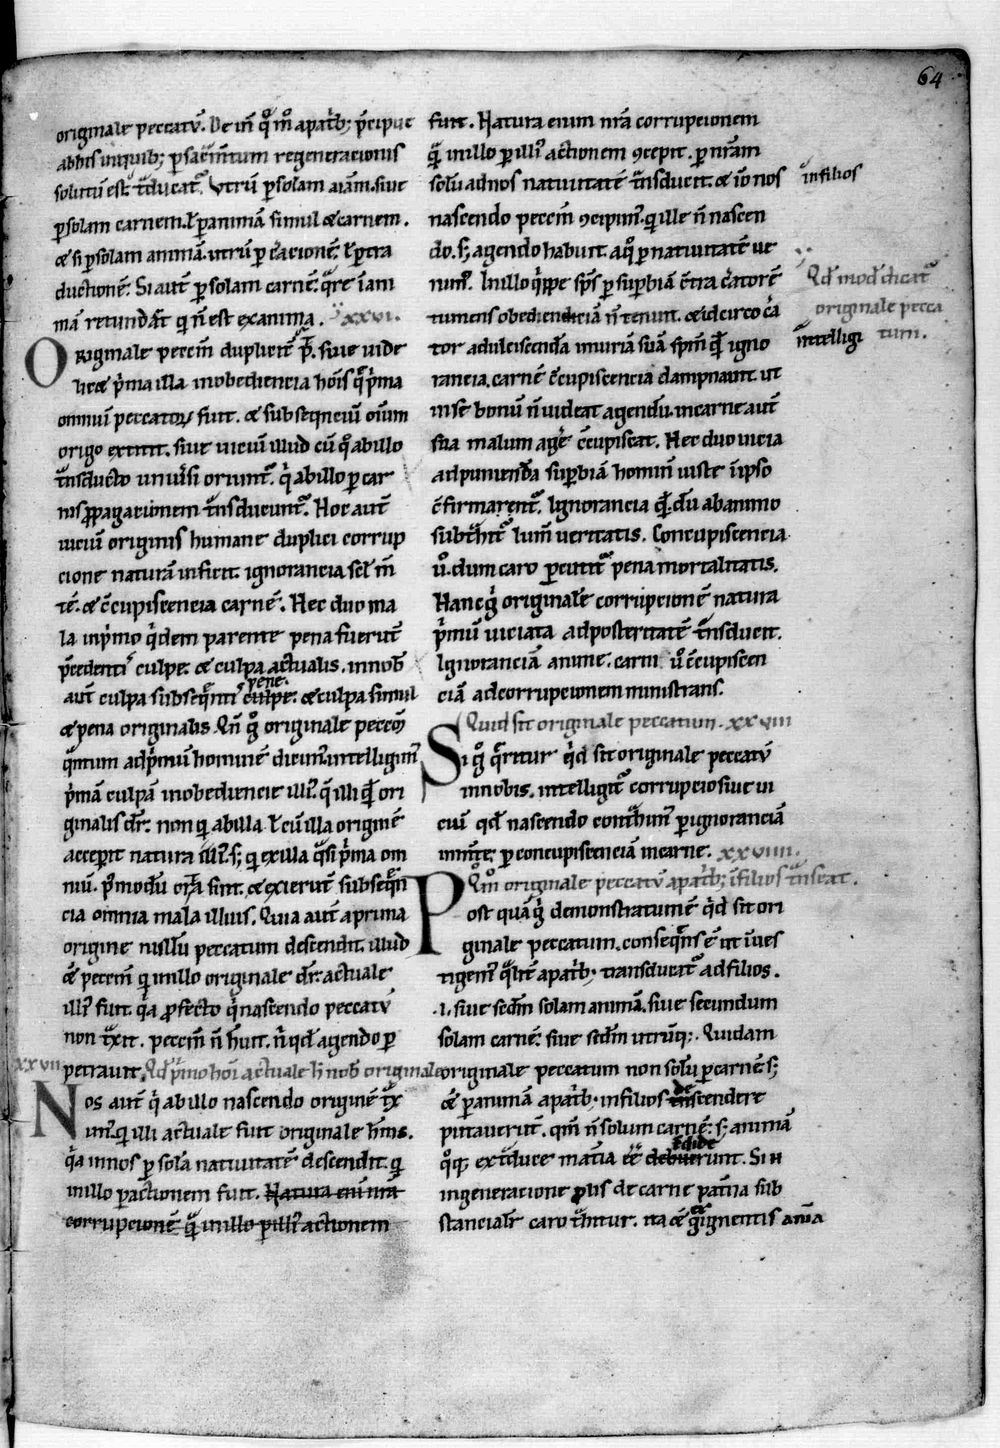 64
originale peccatū. De iñ q̊ m̊ a patrib; precipue
ab his iniquib; p sacm̄tum regeneracionis
solutū est. t̄ducat᷑. Utrū p solam aīam. siue
p solam carnem. ł p animā simul & carnem.
& si p solam animā. utrū p
ductionē. Si aut̄ p solam carnē. q̄re iam
mā retundat̄ q̄ ñ est ex anima. xxvi.
Originale peccm̄ duplicit̄ siue uide
licet p̄ma illa inobediencia hōis q̄ p̄ma
omniū peccatoꝝ fuit. & subseqneiū oīum
origo extitit. siue uiciū illud cū q̊ ab illo
t̄nsducto uniu̓si oriunt᷑. q̓ ab illo p car
nis ꝓpagacionem t̄nsducunt᷑. Hoc aut̄
uiciū originis humane duplici corrup
cione naturā inficit. ignorancia scł m̄
tē. & c̄cupiscencia carnē. Hec duo ma
la in p̓mo q̓dem parente pena fuerūt
p̄cedentis culpe. & culpa actualis. in nob
aut̄ culpa subseq̄ntis culpe. & culpa simul
pene.
& pena originalis. Qn̄ g̊ originale peccm̄
q̄ntum ad p̓mū hominē dicim᷒. intelligim᷒
p̓mā culpā inobediencie illi᷒. q̄ illi q̄ ori
ginalis dr̄. non q ab illa ł cū illa originē
acceperit natura illi᷒. s; q ex illa q̄si p̓ma om
niū. p̓modū orta sint. & exierūt subseq̄n
cia omnia mala illius. Quia aut̄ a prima
origine nullū peccatum descendit. illud
ē peccm̄ q in illo originale dr̄. actuale
illi᷒ fuit. q̓a ꝓfecto q̓ nascendo peccatū
non t̄xit. peccm̄ ñ h̄uit. n̓ qd̄ agendo p
petrauit. Qd̄ p̓mo hōi actuale h̄ nob̄ originale
xxvii
Nos aut̄ q̓ ab illo nascendo originē t̄x
im᷒. q illi actuale fuit originale h̄m᷒.
q̓a in nos p solā natiuitatē descendit. q
in illo p actionem fuit. Natura eni nr̄a
corrupcionē q̄ in illo p illi᷒ actionem
fuit. Natura enim nr̄a corrupcionem
q̄ in illo p illi᷒ actionem ꝯcepit. p nr̄am
solū ad nos natiuitatē t̄nsducit. & iō nos
in filios
nascendo peccm̄ ꝯcipim᷒. q ille ñ nascen
do. s; agendo habuit. a q̊ p natiuitatē ue
nim᷒. In illo q̓ppe sp̄s p supbiā c̄tra c̄atorē
tumens obedienciā ñ tenuit. & idcirco c̄a
Qd̄ mod̄ dicat᷑
originale pecca
tum.
tor adulciscenda iniuriā suā spm̄ q̄ igno
intelligi
rancia. carnē c̄cupiscencia dampnauit ut
in se bonū ñ uideat agendū. in carne aut̄
sua malum age c̄cupiscat. Hec duo uicia
ad puniendā supbiā hominū iuste in ipso
c̄firmarent᷑. Ignorancia q̄. dū ab animo
subt̄hit᷑ lum̄ ueritatis. Concupiscencia
u̓. dum caro pcutit᷑ pena mortalitatis.
Hanc g̓ originalē corrupcionē natura
p̓mū uiciata ad posteritatē t̄nsducit.
Ignoranciā anime. carni u̓ c̄cupiscen
ciā ad corrupcionem ministrans.
Quid sit originale peccatum. xxviii
Si g̊ q̄ritur q̓d sit originale peccatū
in nobis. intelligit᷑ corrupcio siue ui
ciū qd̄ nascendo cont̄him᷒ p ignoranciā
in mēte. p concupiscenciā in carne. xxviiii.
Qm̊ originale peccatū a patrib; ī filios t̄nseat.
Post quā g̓ demonstratum ē q̓d sit ori
ginale peccatum. conseq̄ns ē ut īues
tigem᷒ q̄lit̄ a patrib; transducat᷑ ad filios.
.i. siue scdm̄ solam animā. siue secundum
solam carnē. siue scdm̄ utrūq;. Quidam
originale peccatum non solū p carnē s;
& p animam a patrib; in filios descendere
putauerūt. qm̄ ñ solum carnē. s; animā
q̊q; ex t̄duce materia eē debuerunt. Sic
c̄dide
in generacione ꝓlis de carne patria sub
stancialit̄ caro t̄hitur. ita & gignentis anima